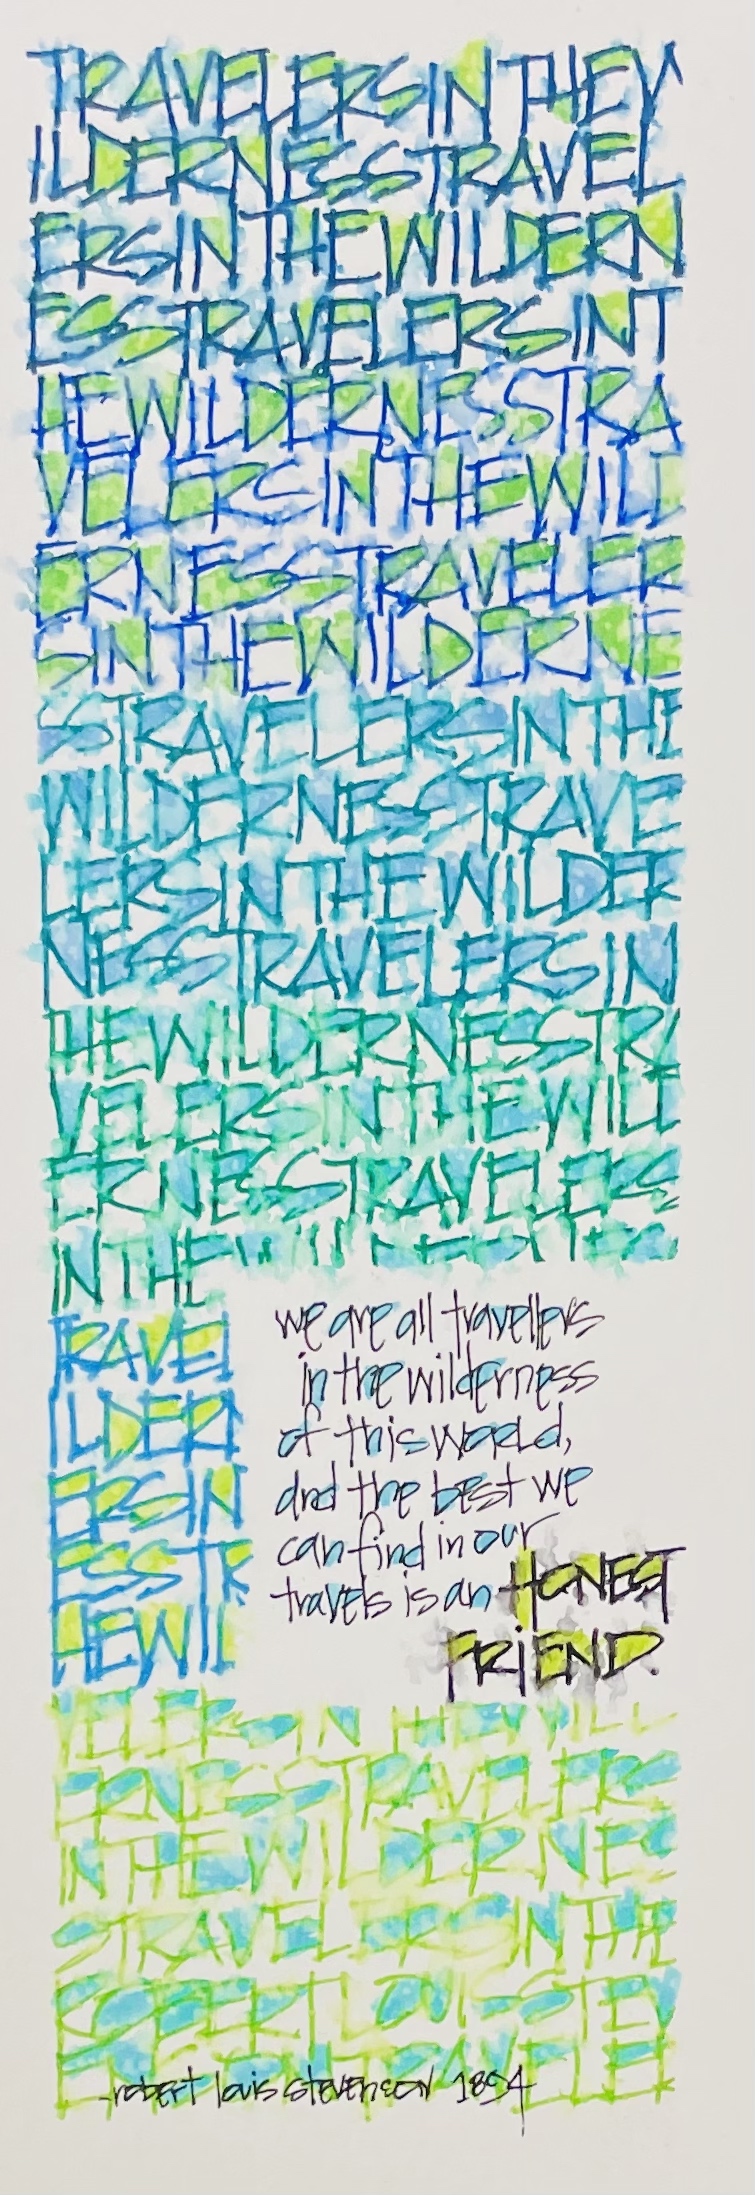 TRAVELERS IN THE W
ILDERNESS TRAVEL
ERS IN THE WILDERN
ESS TRAVELERS IN T
HE WILDERNESS TRA
VELERS IN THE WILD
ERNESS TRAVELER
S IN THE WILDERNE
SS TRAVELERS IN THE
WILDERNESS TRAVE
LERS IN THE WILDER
NESS TRAVELERS IN
THE WILDERNESS TRA
VELERS IN THE WILD
ERNESS TRAVELERS
IN THE WILDERNESS
TRAVEL
ILDERN
ERS IN
ESS TR
HE WIL
we are all travellers
in the wilderness
of this world,
and the best we
can find in our
travels is an HONEST
FRIEND.
VELERS IN THE WILL
ERNESS TRAVELERS
IN THE WILDERNES
S TRAVELERS IN THE
ROBERT LOUIS STEV
TRAVELE
robert louis stevenson 1894